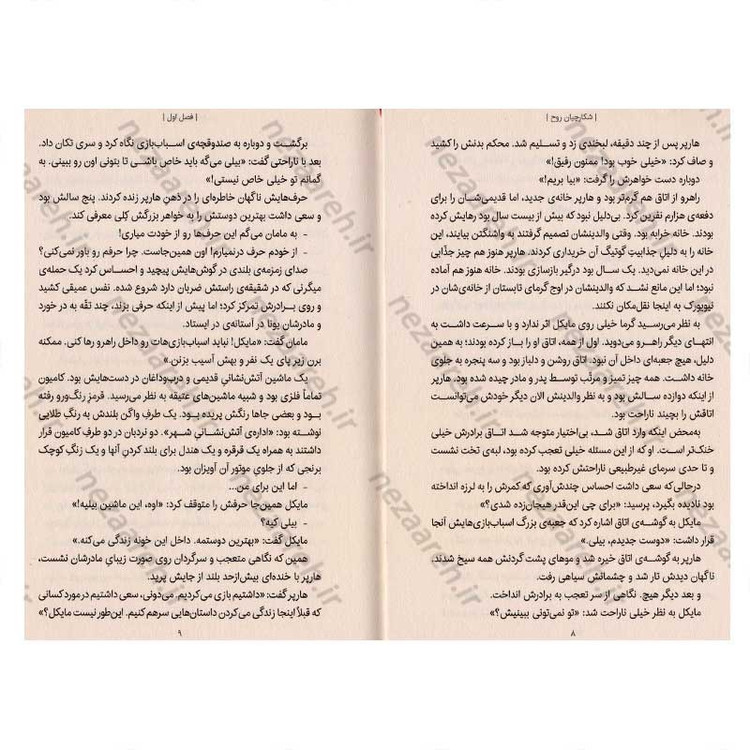 | شکارچیان روح |
هارپر پس از چند دقیقه، لبخندی زد و تسلیم شد. محکم بدنش را کشید
و صاف کرد: «خیلی خوب بود! ممنون رفیق!»
دوباره دست خواهرش را گرفت: «بیا بریم!»
راهرو از اتاق هم گرم‌تر بود و هارپر خانه‌ی جدید، اما قدیمی‌شان را برای
دفعه‌ی هزارم نفرین کرد. بی‌دلیل نبود که بیش از بیست سال بود رهایش کرده
بودند. خانه خرابه بود. وقتی والدینشان تصمیم گرفتند به واشنگتن بیایند، این
خانه را به دلیلِ جذابیتِ گوتیگ آن خریداری کردند. هارپر هنوز هم چیز جذّابی
در این خانه نمی‌دید. یک سال بود درگیر بازسازی بودند. خانه هنوز هم آماده
نبود؛ اما این مانع نشد که والدینشان در اوج گرمای تابستان از خانه‌ی‌شان در
نیویورک به اینجا نقل‌مکان نکنند.
به نظر می‌رسید گرما خیلی روی مایکل اثر ندارد و با سرعت داشت به
انتهای دیگر راهـرو می‌دوید. اول از همه، اتاق او را بـاز کرده بودند؛ به همین
دلیل، هیچ جعبه‌ای داخل آن نبود. اتاق روشن و دلباز بود و سه پنجره به جلوی
خانه داشت. همه چیز تمیز و مرتّب توسط پدر و مادر چیده شده بود. هارپر
از اینکه دوازده سالش بود و به نظر والدینش الان دیگر خودش می‌توانست
اتاقش را بچیند ناراحت بود.
به‌محض اینکه وارد اتاق شد، بی‌اختیار متوجه شد اتاق برادرش خیلی
خنک‌تر است. او که از این مسئله خیلی تعجب کرده بود، لبه‌ی تخت نشست
و تا حدی سرمای غیرطبیعی ناراحتش کرده بود.
درحالی‌که سعی داشت احساس چندش‌آوری که کمرش را به لرزه انداخته
بود نادیده بگیرد، پرسید: «برای چی این‌قدر هیجان‌زده شدی؟»
مایکل به گوشه‌ی اتاق اشاره کرد که جعبه‌ی بزرگ اسباب‌بازی‌هایش آنجا
قرار داشت: «دوست جدیدم، بیلی.»
هارپر به گوشه‌ی اتاق خیره شد و موهای پشت گردنش همه سیخ شدند.
ناگهان دیدش تار شد و چشمانش سیاهی رفت.
و بعد دیگر هیچ. نگاهی از سر تعجب به برادرش انداخت.
مایکل به نظر خیلی ناراحت شد: «تو نمی‌تونی ببینیش؟»
۸
| فصل اول |
برگشـت و دوباره به صندوقچه‌ی اسـباب‌بازی نگاه کرد و سـری تکان داد.
بعد با ناراحتی گفت: «بیلی می‌گه باید خاص باشـی تا بتونی اون رو ببینی. به
گمانم تو خیلی خاص نیستی!»
حرف‌هایش ناگهان خاطره‌ای را در ذهنِ هارپر زنده کردند. پنج سالش بود
و سعی داشت بهترین دوستش را به خواهر بزرگش کِلی معرفی کند.
- به مامان می‌گم این حرف‌ها رو از خودت میاری!
- از خودم حرف درنمیارم! اون همین‌جاست. چرا حرفم رو باور نمی‌کنی؟
صدای زمزمه‌ی بلندی در گوش‌هایش پیچید و احساس کرد یک حمله‌ی
میگرنی که در شقیقه‌ی راستش ضربان دارد شروع شده. نفس عمیقی کشید
و روی بـرادرش تمرکز کرد؛ اما پیش از اینکه حرفی بزند، چند تقّه به در خورد
و مادرشان یونا در آستانه‌ی در ایستاد.
مامان گفت: «مایکل! نباید اسباب‌بازی‌هات رو داخل راهرو رها کنی. ممکنه
برن زیر پای یک نفر و بهش آسیب بزنن.»
یک ماشین آتش‌نشانیِ قدیمی و درب‌وداغان در دست‌هایش بود. کامیون
تماماً فلزی بود و شبیه ماشین‌های عتیقه به نظر می‌رسید. قرمزِ رنگ‌ورو رفته
بـود و بعضی جاها رنگش پریده بـود. یک طرفِ واگن بلندش به رنگِ طلایی
نوشـته بود: «اداره‌ی آتش‌نشـانی شهـر». دو نردبان در دو طرفِ کامیون قرار
داشتند به همراه یک قرقره و یک هندل برای بلند کردنِ آنها و یک زنگِ کوچک
برنجی که از جلوی موتور آن آویزان بود.
- اما این برای من...
مایکل همین‌جا حرفش را متوقف کرد: «اوه، این ماشین بیلیه!»
- بیلی کیه؟
مایکل گفت: «بهترین دوستمه. داخل این خونه زندگی می‌کنه.»
همین که نگاهی متعجب و سرگردان روی صورت زیبای مادرشان نشست،
هارپر با خنده‌ای بیش‌ازحد بلند از جایش پرید.
هارپر گفت: «داشتیم بازی می‌کردیم. می‌دونی، سعی داشتیم در مورد کسانی
که قبلاً اینجا زندگی می‌کردن داستان‌هایی سرهم کنیم. این‌طور نیست مایکل؟»
۹
nezaareh.ir